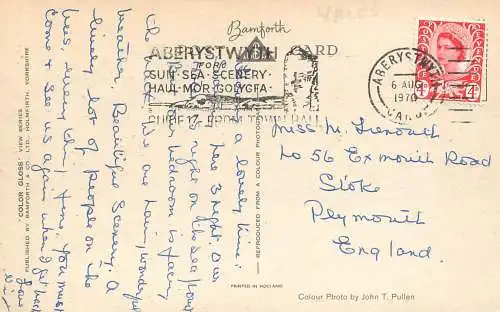 WALES
Bamforth
POST CARD
ABERYSTWYTH
FOR
SUN·SEA·SCENERY·
HAUL·MOR·GOLYGFA·
GUIDE FROM TOWN HALL
ABERYSTWYTH
6 AUG
1970
CARDS
4D 4D
a lovely time.
here 3 nights. Our
is right on the sea front
our bedroom is facing
the We are having wonderful
weather, Beautiful Scenery. A
lively lot of people on the
bus, every time. You must
come & see us again when I get back
Love
Miss M. Trenouth
56 Exmouth Road
Stoke
Plymouth
England.
"COLOR GLOSS" VIEW SERIES
PUBLISHED BY BAMFORTH & CO. LTD. HOLMFIRTH, YORKSHIRE
REPRODUCED FROM A COLOUR PHOTO
PRINTED IN HOLLAND
Colour Photo by John T. Pullen